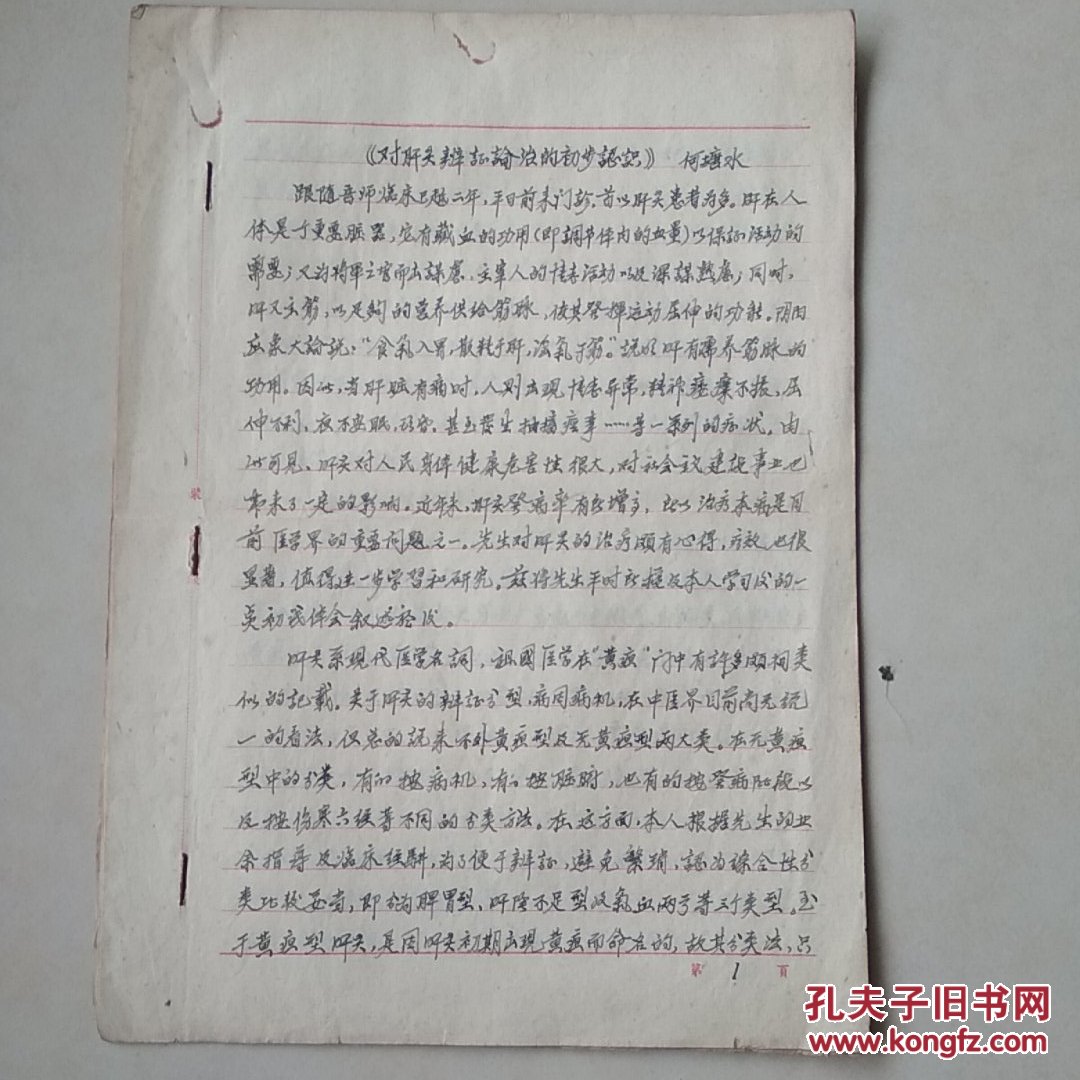 《对肝炎辨証論治的初步認识》 何 水
跟随吾师临床已越二年,平日前来门診,首以肝炎患者为多。肝在人
体是一个重要脏器,它有藏血的功用(即調节体内的血量)以保証活动的
需要;又为将軍之官而出謀慮,主宰人的情志活动以及深謀熟慮;同时,
肝又主筋,以足夠的营养供给筋脉,使其發揮运动屈伸的功能。阴阳
应象大論說:“食氣入胃,散精于肝,淫氣于筋。”説明肝有濡养筋脉的
功用。因此,当肝脏有病时,人则出现情志异常,精神 不振,屈
伸不利,夜不安眠, 甚至發生抽搐痙 ……等一系列的症状。由
此可見,肝炎对人民身体健康危害性很大,对社会主义建設事业也
带来了一定的影响。近年来,肝炎發病率有所增多, 以治疗本病是目
前医学界的重要问题之一。先生对肝炎的治疗頗有心得,疗效也很
显著,值得进一步学習和研究。兹将先生平时所授及本人学习后的一
点初浅体会叙述于后。
肝炎系現代医学名詞,祖國医学在“黄疸”门中有許多頗相类
似的記載。关于肝炎的辨証分型,病因病机,在中医界目前尚无統
一的看法,但总的說来不外黄疸型及无黄疸型两大类。在无黄疸
型中的分类,有的按病机,有的按脏腑,也有的按發病阶段以
及按伤寒六經等不同的分类方法。在这方面,本人根据先生的业
余指导及临床经驗,为了便于辨証,避免繁瑣,認为綜合性分
类比较妥当,即分为脾胃型,肝阴不足型及氣血两亏等三个类型。至
于黄疸型肝炎,是因肝炎初期出現黄疸而命名的,故其分类法,只
第 1 頁
孔夫子旧书网
www.kongfz.com